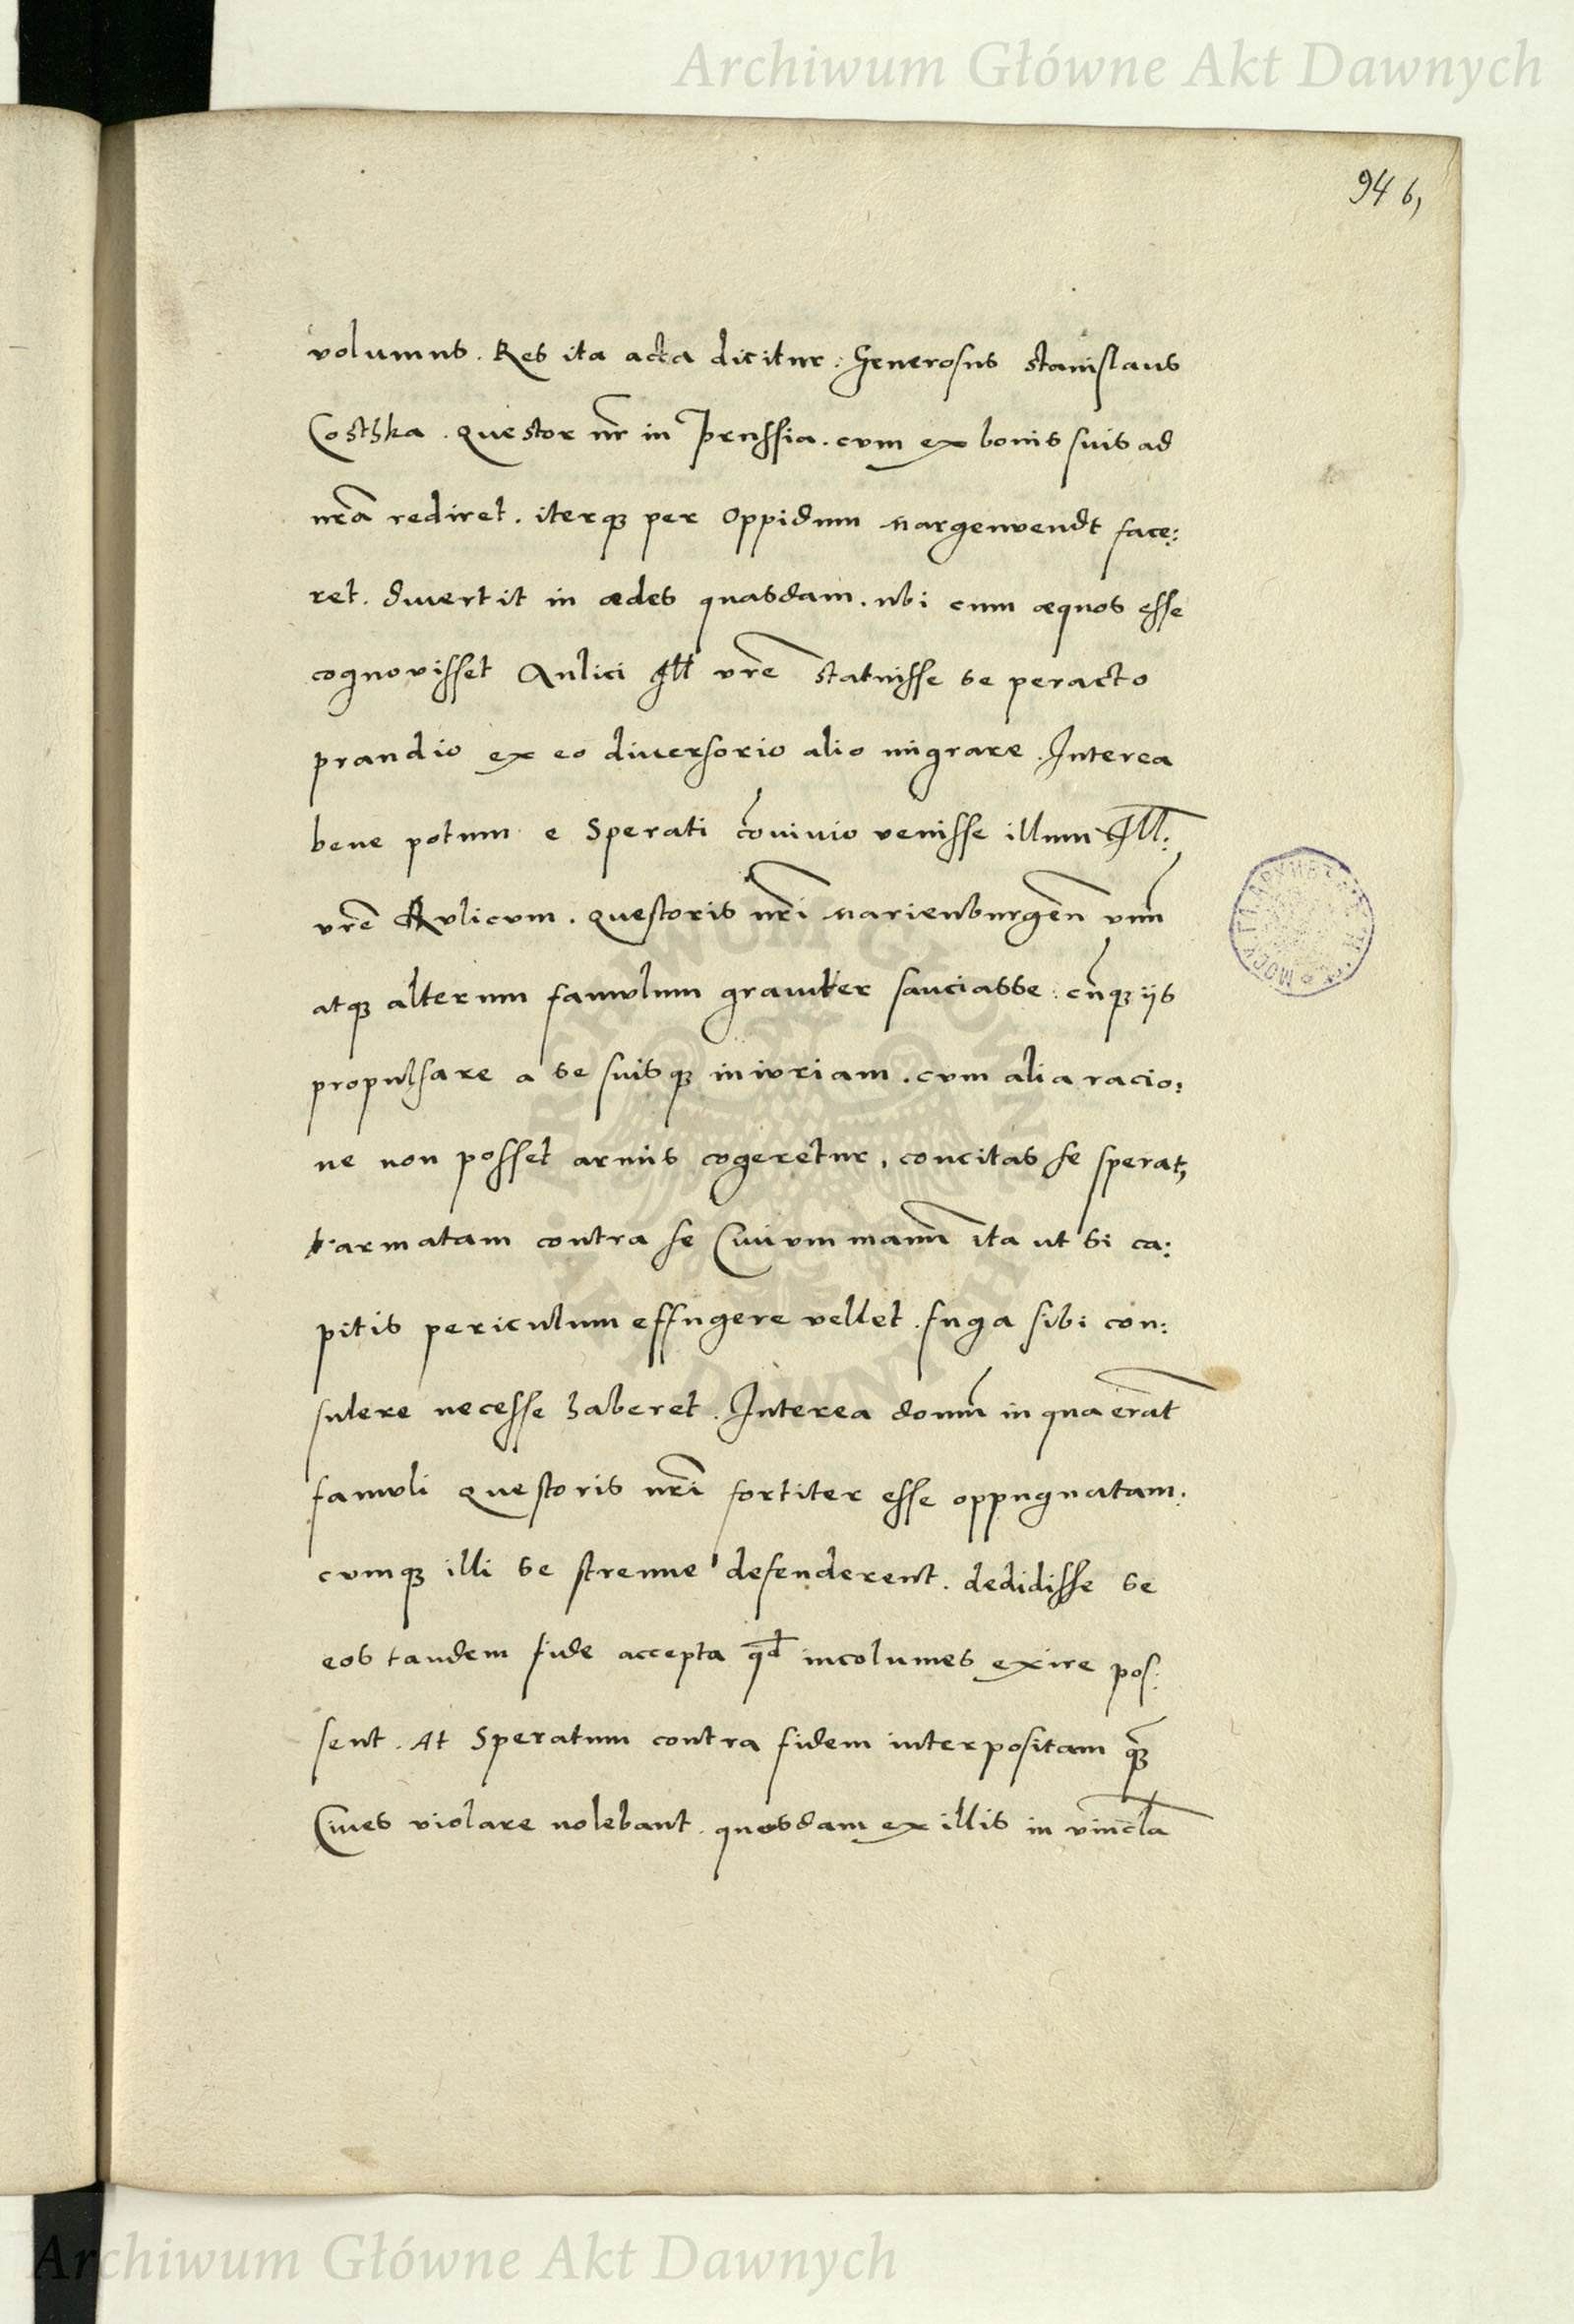 Archiwum Główne Akt Dawnych
94 6,
volumus. Res ita acta dicitur: Generosus Stanislaus
Costhka. Questor nr̃ in Prussia. cum ex bonis suis ad
nrã rediret. iterqꝫ per Oppidum Margenvendt face:
ret. divertit in ædes quasdam. ubi cum æquos esse
cognovisset Aulici Ill vrẽ statuisse se peracto
prandio ex eo diversorio alio migrare. Interea
bene potum e Sperati cõvivio venisse illum Ill:
vrẽ Aulicum. Questoris nrĩ Marienburgeñ unũ
atqꝫ alterum famulum graviter sauciasse: cũqꝫ iis
propulsare a se suisqꝫ iniuriam. cum alia racio:
ne non posset armis cogeretur, concitas se sperat,
armatam contra se Civium manũ ita ut si ca:
pitis periculum effugere vellet. fuga sibi con:
sulere necesse haberet. Interea domũ in qua erãt
famuli Questoris nrĩ fortiter esse oppugnatam.
cumqꝫ illi se strenue defenderent. dedidisse se
eos tandem fide accepta qd̃ incolumes exire pos:
sent. At Speratum contra fidem interpositam quã
Cives violare nolebant. quosdam ex illis in vincl̃a
ARCHIWUM GŁÓWNE AKT DAWNYCH
Archiwum Główne Akt Dawnych